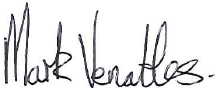 Mark Venables.